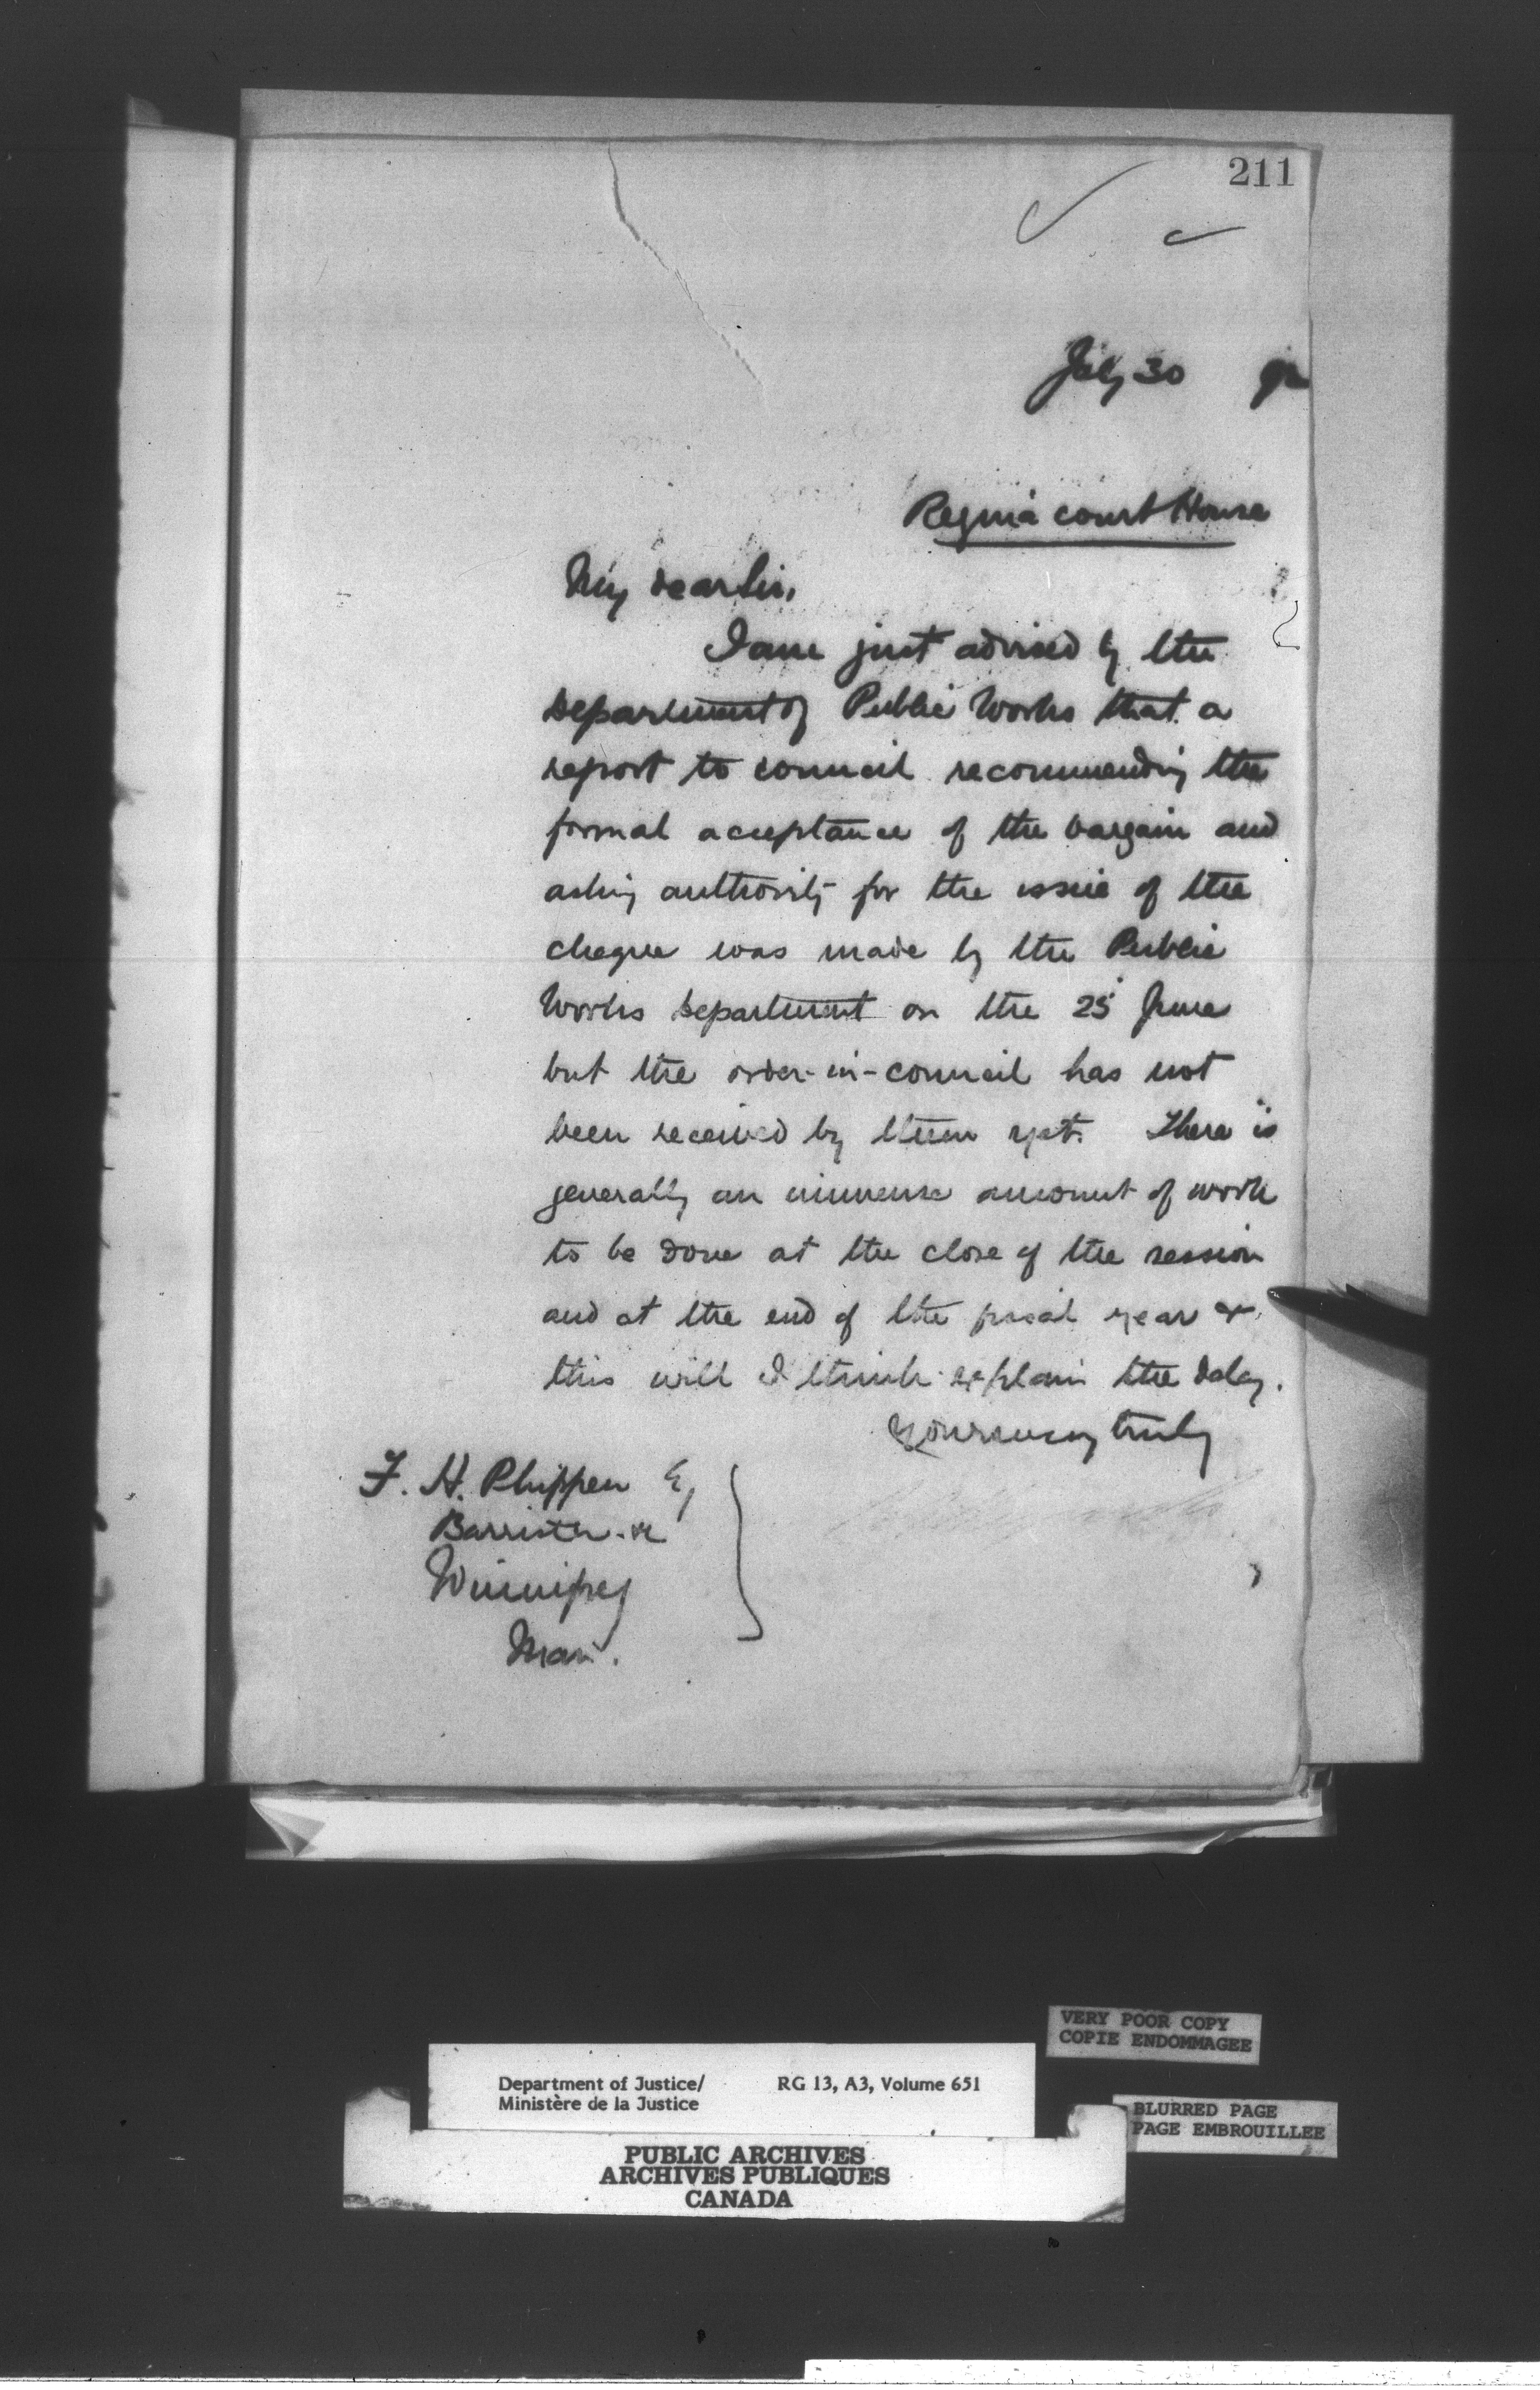 211
July 30 92
Regina court House
My dear Sir,
I am just advised by the
department of Public Works that a
report to council recommending the
formal acceptance of the bargain and
asking authority for the issue of the
cheque was made by the Public
Works department on the 25 June
but the order-in-council has not
been received by them yet. There is
generally an immense amount of work
to be done at the close of the session
and at the end of the fiscal year &
this will I think explain the delay.
Yours very truly
F. H. Phippen Eq
Barrister &c
Winnipeg
Man.
VERY POOR COPY
COPIE ENDOMMAGEE
Department of Justice/ RG 13, A3, Volume 651
Ministère de la Justice
BLURRED PAGE
PAGE EMBROUILLEE
PUBLIC ARCHIVES
ARCHIVES PUBLIQUES
CANADA